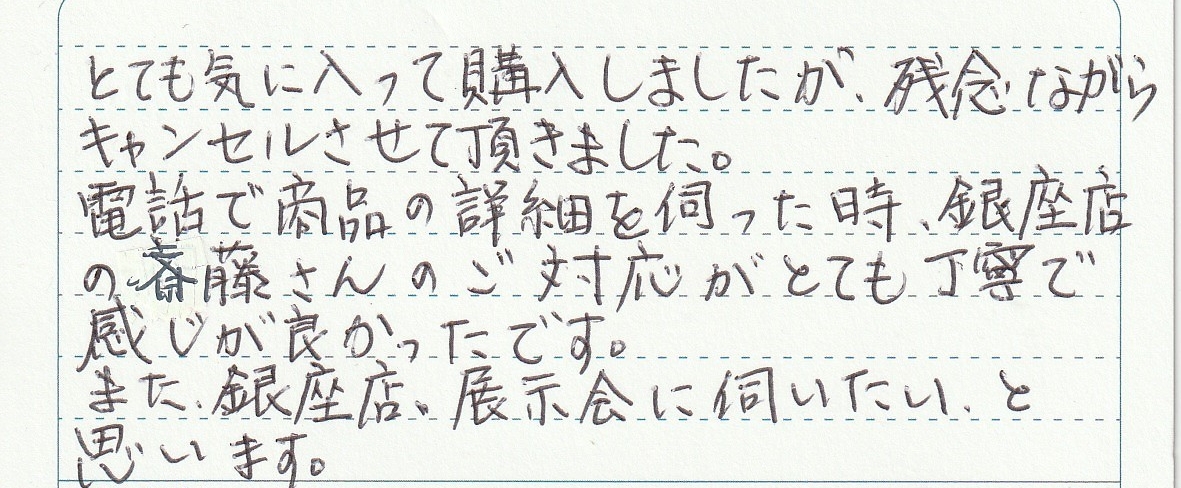 とても気に入って購入しましたが、残念ながら
キャンセルさせて頂きました。
電話で商品の詳細を伺った時、銀座店
の斎藤さんのご対応がとても丁寧で
感じが良かったです。
また、銀座店、展示会に伺いたい、と
思います。